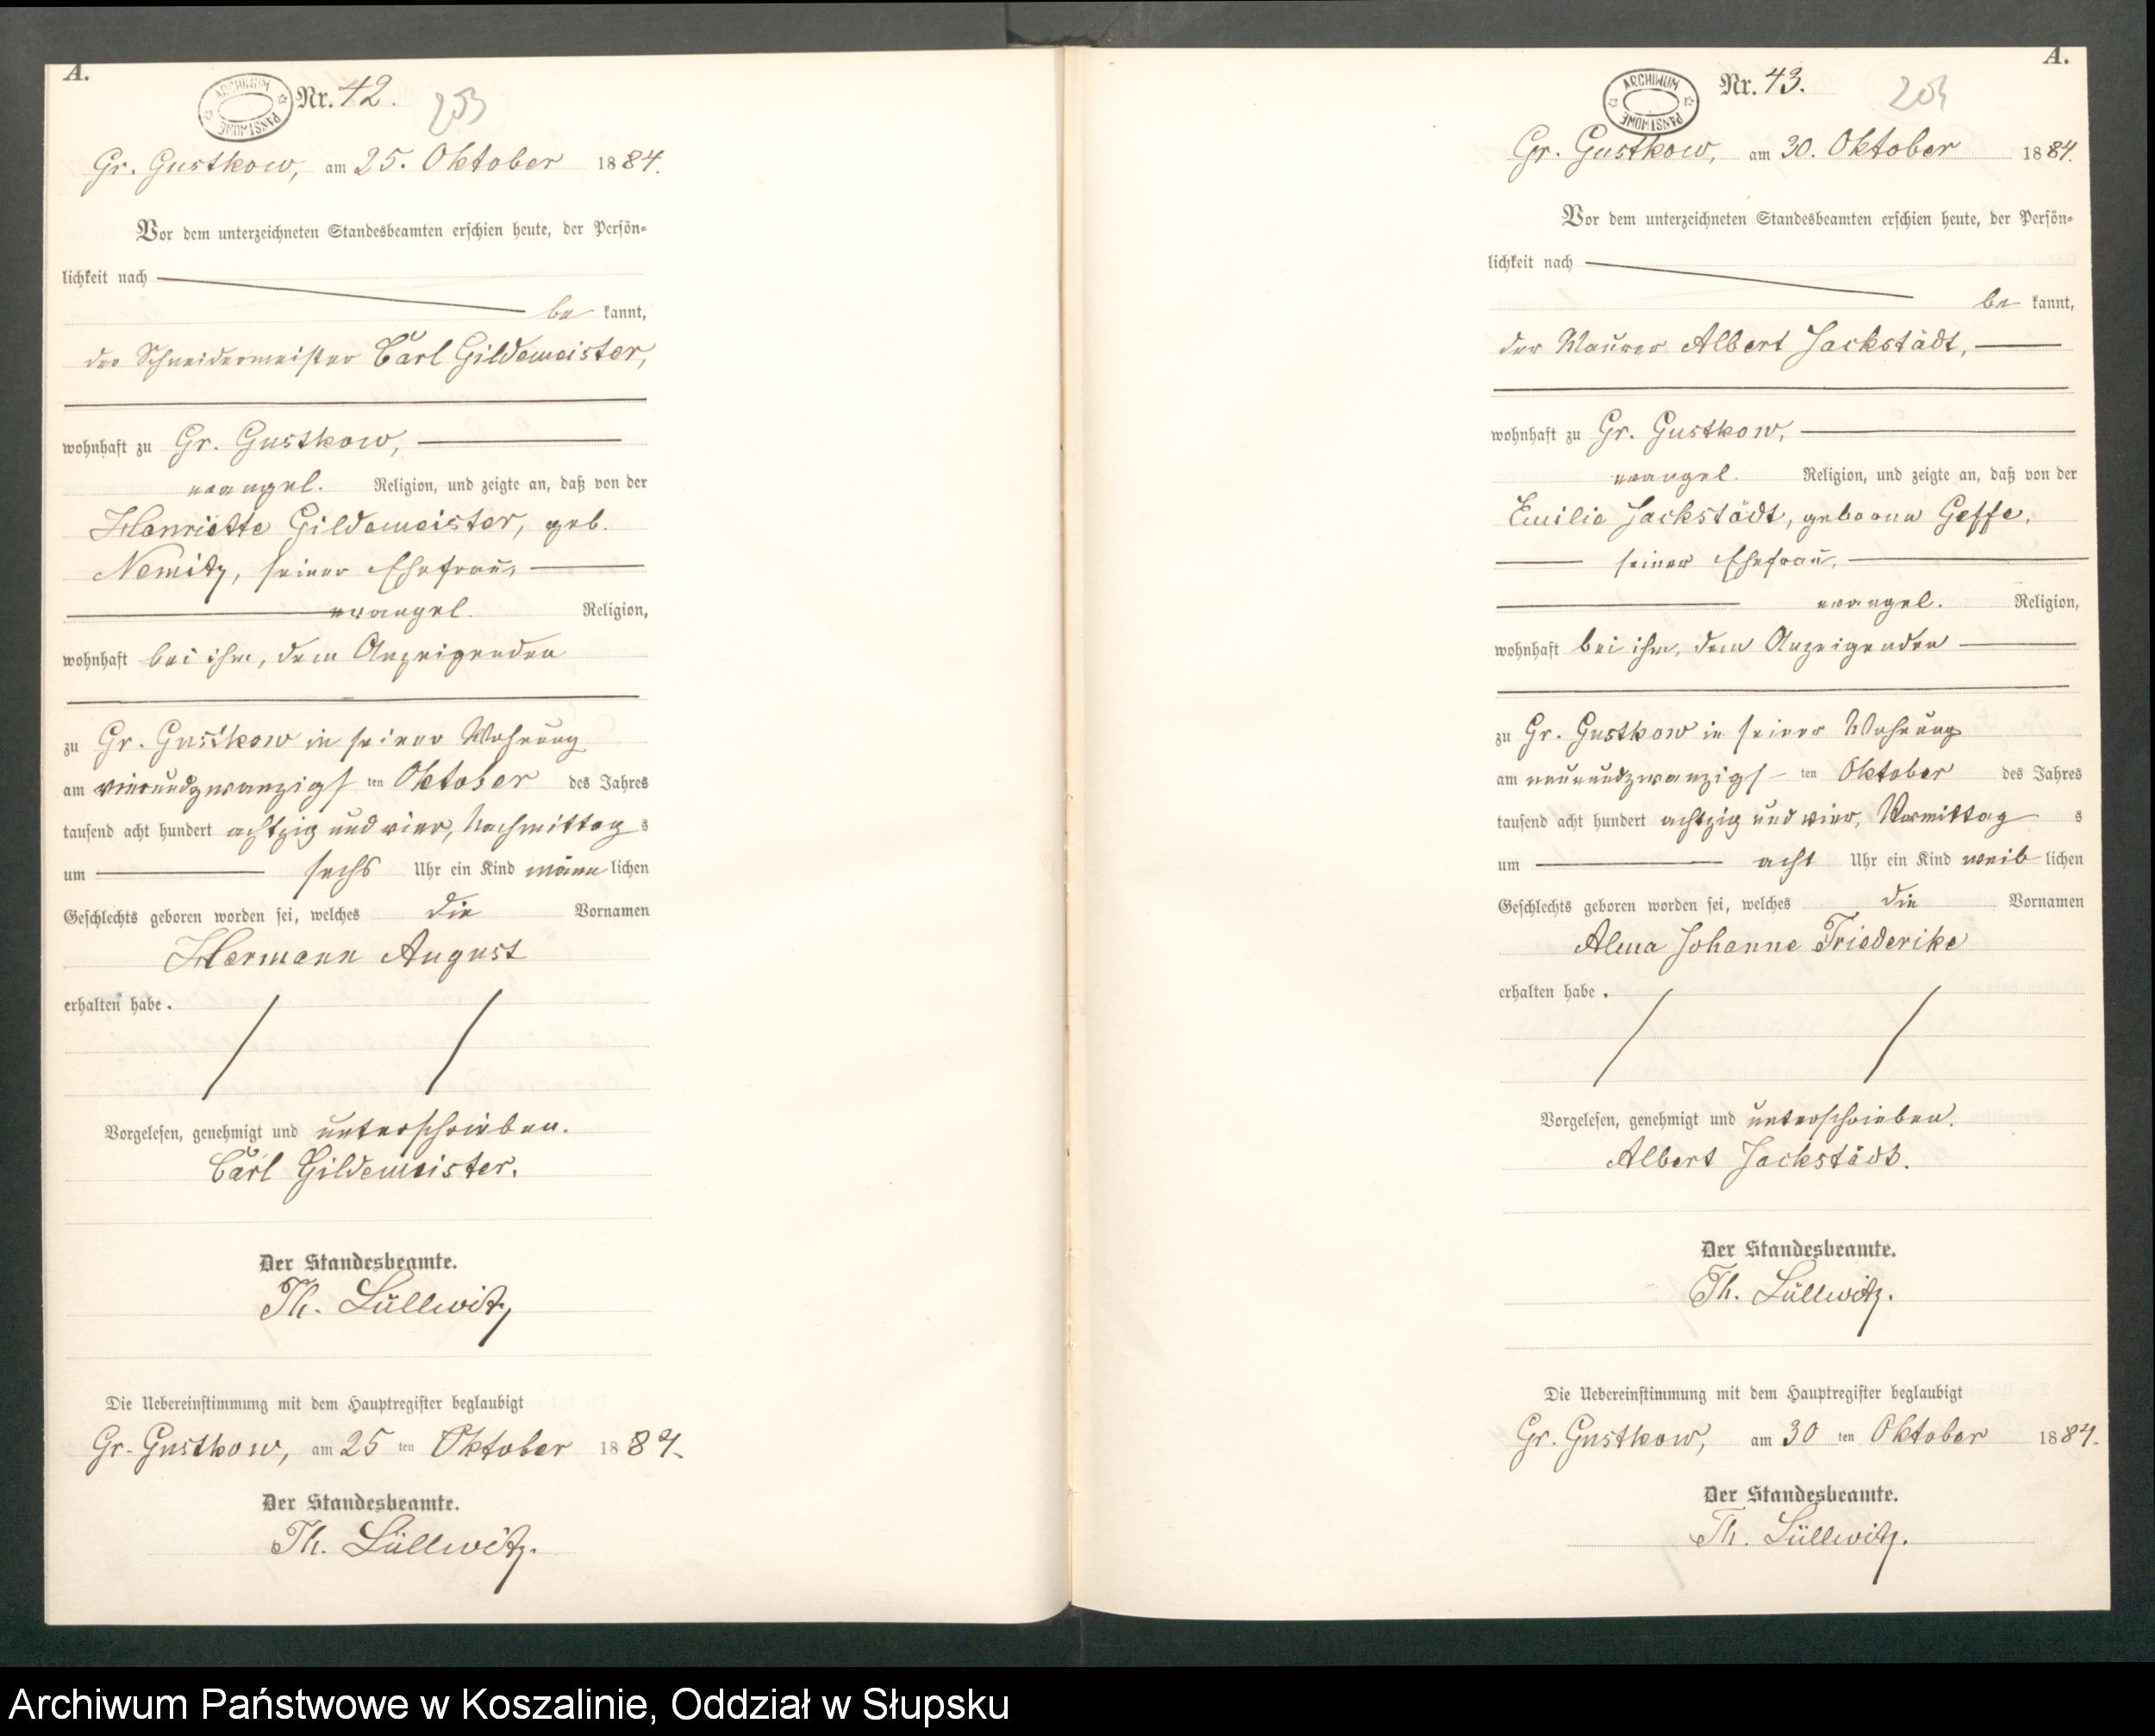 A.
ARCHIWUM PAŃSTWOWE
Nr. 42.
253
Gr. Gustkow, am 25. Oktober 1884.
Vor dem unterzeichneten Standesbeamten erschien heute, der Persön-
lichkeit nach
be kannt,
der Schneidermeister Carl Gildemeister,
wohnhaft zu Gr. Gustkow,
evangel. Religion, und zeigte an, daß von der
Henriette Gildemeister, geb.
Nemitz, seiner Ehefrau,
evangel. Religion,
wohnhaft bei ihm, dem Anzeigenden
zu Gr. Gustkow in seiner Wohnung
am vierundzwanzigs ten Oktober des Jahres
tausend acht hundert achtzig und vier, Nachmittag s
um sechs Uhr ein Kind männ lichen
Geschlechts geboren worden sei, welches die Vornamen
Hermann August
erhalten habe.
Vorgelesen, genehmigt und unterschrieben.
Carl Gildemeister.
Der Standesbeamte.
Th. Lüllwitz
Die Uebereinstimmung mit dem Hauptregister beglaubigt
Gr. Gustkow, am 25 ten Oktober 1884.
Der Standesbeamte.
Th. Lüllwitz.
A.
ARCHIWUM PAŃSTWOWE
Nr. 43.
254
Gr. Gustkow, am 30. Oktober 1884.
Vor dem unterzeichneten Standesbeamten erschien heute, der Persön-
lichkeit nach
be kannt,
der Maurer Albert Jackstädt,
wohnhaft zu Gr. Gustkow,
evangel. Religion, und zeigte an, daß von der
Emilie Jackstädt, geborene Geffe,
seiner Ehefrau,
evangel. Religion,
wohnhaft bei ihm, dem Anzeigenden
zu Gr. Gustkow in seiner Wohnung
am neunundzwanzigs ten Oktober des Jahres
tausend acht hundert achtzig und vier, Vormittag s
um acht Uhr ein Kind weib lichen
Geschlechts geboren worden sei, welches die Vornamen
Alma Johanne Friederike
erhalten habe.
Vorgelesen, genehmigt und unterschrieben.
Albert Jackstädt.
Der Standesbeamte.
Th. Lüllwitz.
Die Uebereinstimmung mit dem Hauptregister beglaubigt
Gr. Gustkow, am 30 ten Oktober 1884.
Der Standesbeamte.
Th. Lüllwitz.
Archiwum Państwowe w Koszalinie, Oddział w Słupsku